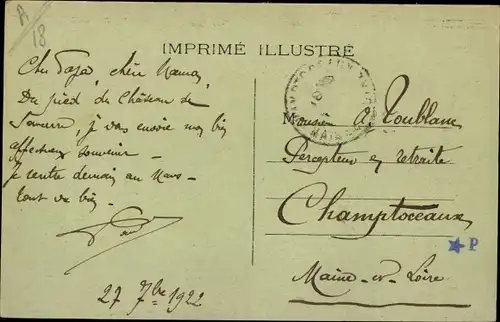 A
18
IMPRIMÉ ILLUSTRÉ
Cher Papa, chère Maman,
Du pied du Château de
Saumur, je vous envoie mon bien
affectueux souvenir -
Je rentre demain au Mans -
tout va bien -
Paul
27 7bre 1922
CHAMPTOCEAUX
MAINE
Monsieur A Toublanc
Percepteur en retraite
Champtoceaux
P
Maine-et-Loire